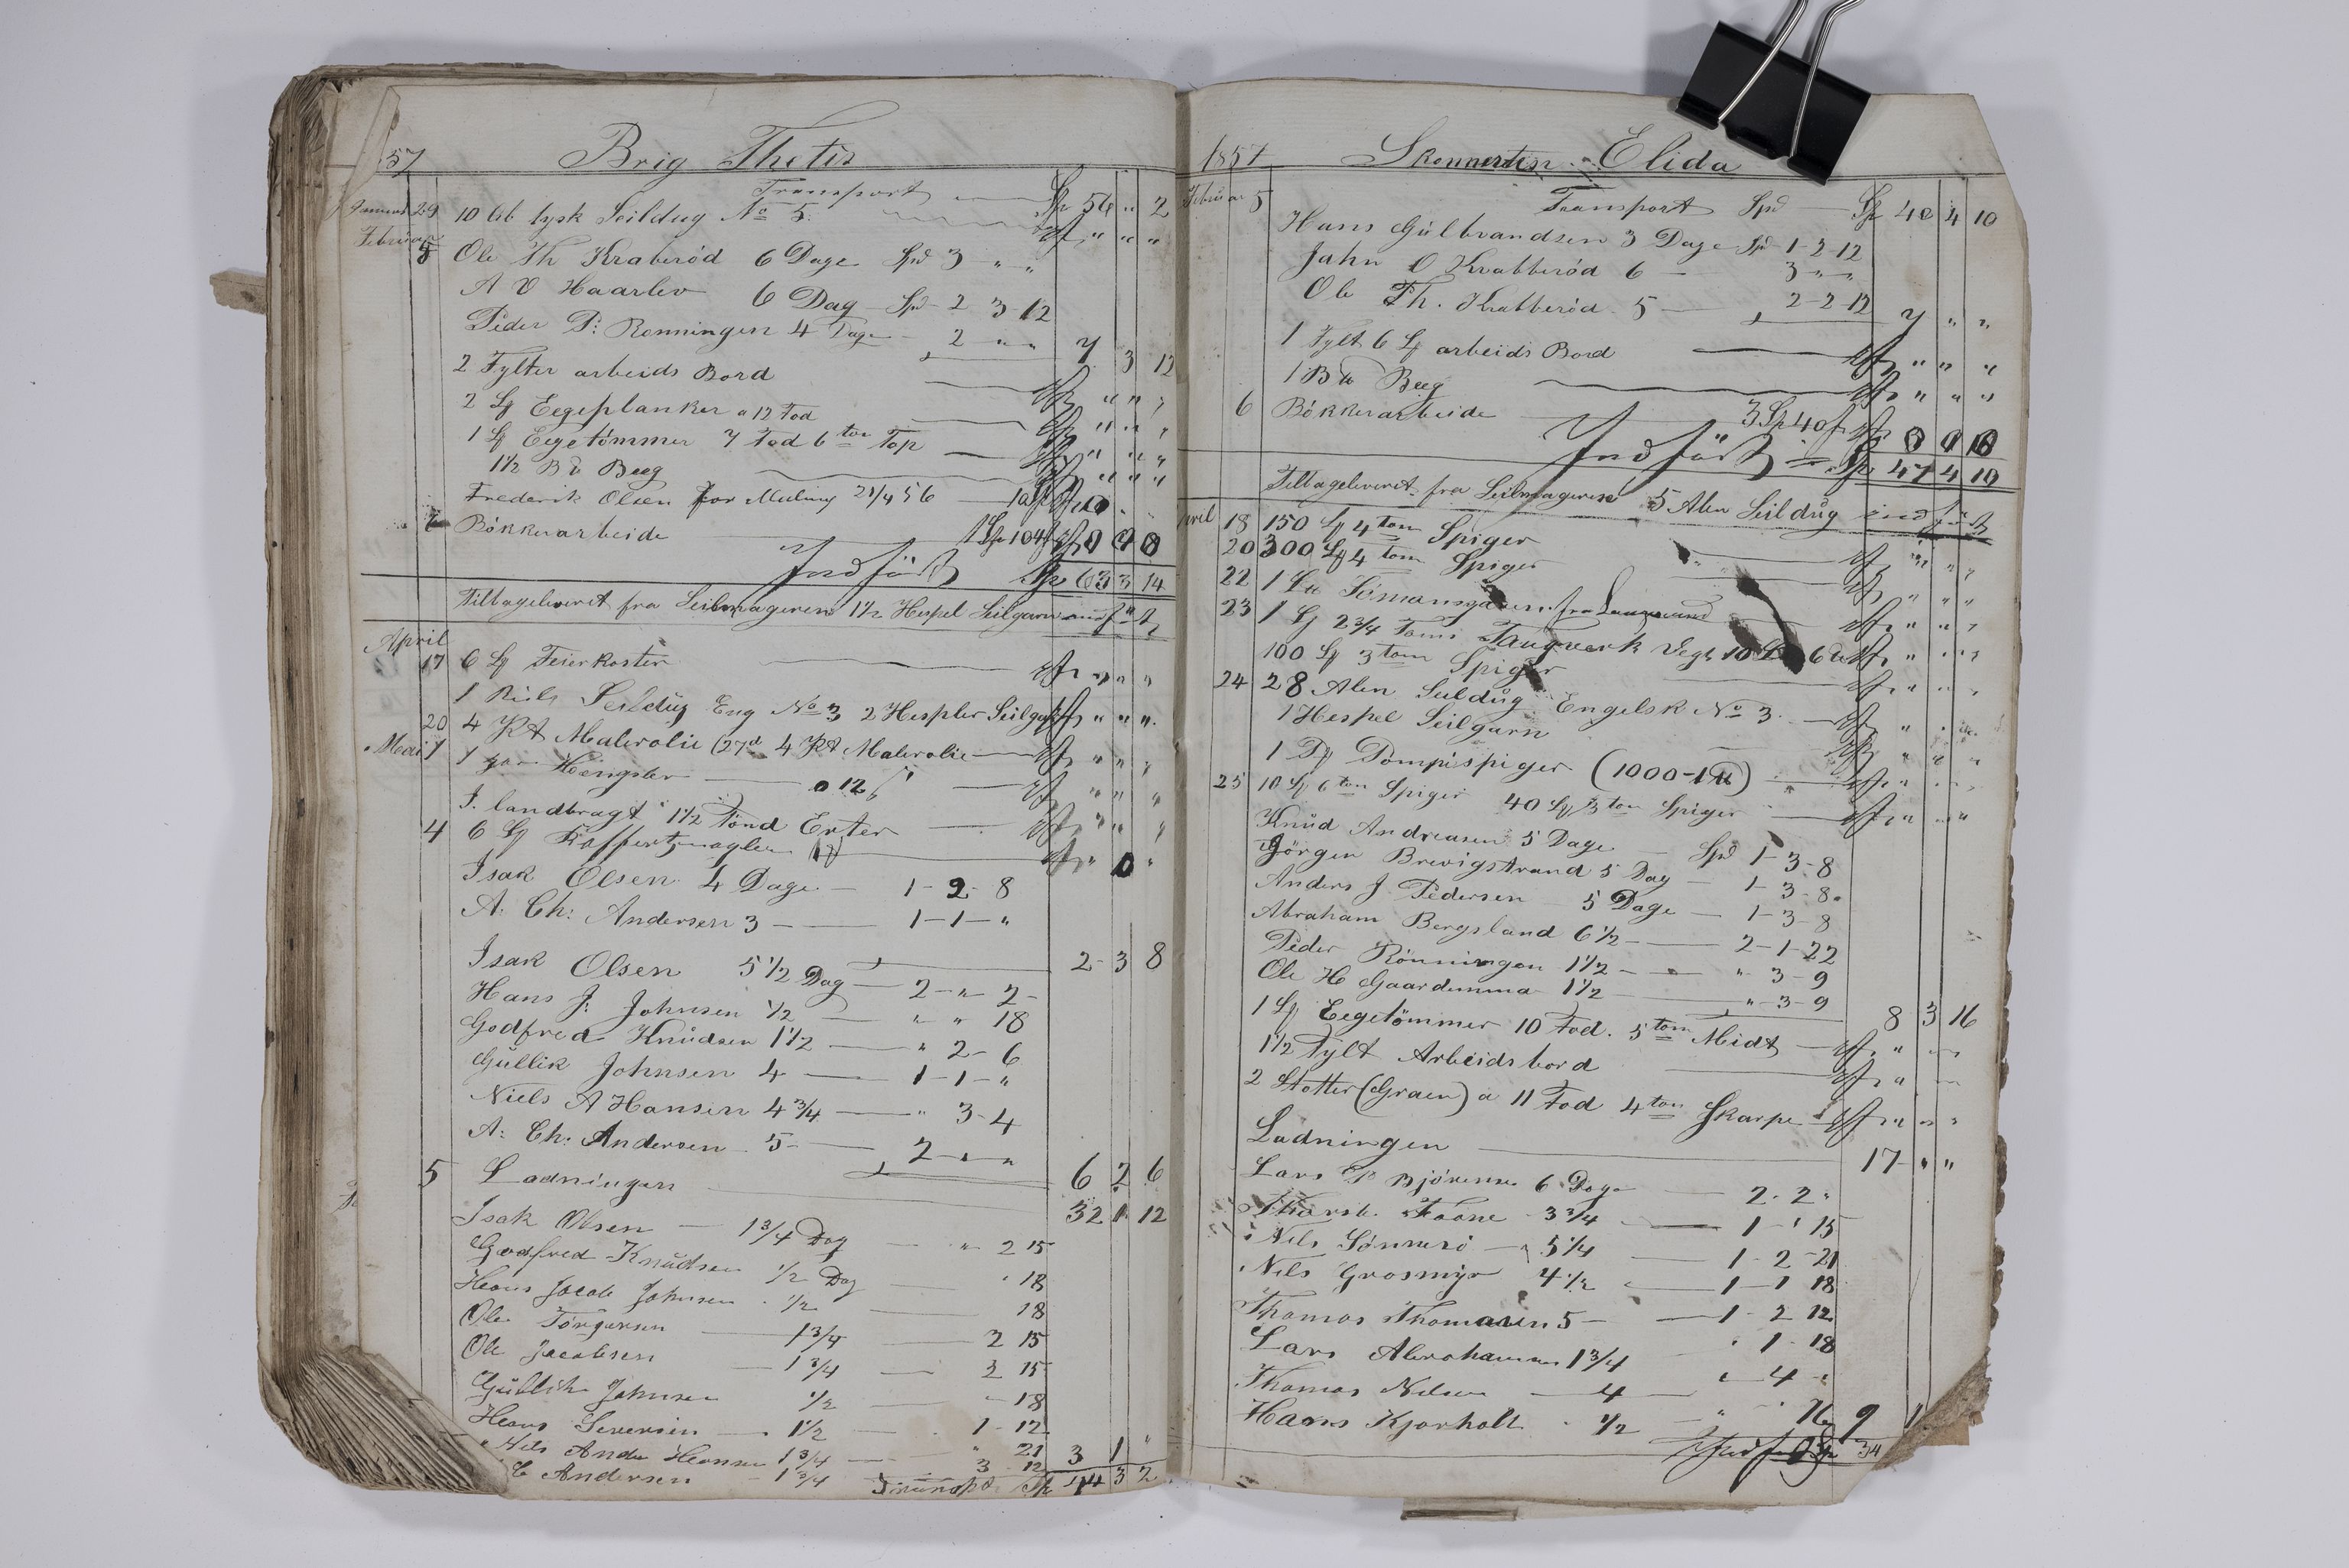 57 Brig Thetis
Transport Sp 56 " 2
Januar 29 10 Al tysk Seildug No 5 " " "
Februar 5 Ole Th Kraberöd 6 Dage Spd 3 " "
A O Haarlev 6 Dag Spd 2 3 12
Peder P: Ronningen 4 Dage 2 " " 7 3 12
2 Tylter arbeids Bord " " "
2 Eegeplanker a 12 Fod " " "
1 Eegetömmer 7 Fod 6 tom Top " " "
1½ Bd Beeg " " "
Frederik Olsen for Maling 21/4 56
6 Bökkerarbeide 1 Sp 104
Indfört Sp 63 3 14
Tilbageleveret fra Seilmageren 1½ Hespel Seilgarn indfört
April
17 6 Feierkoster " " "
1 Rull Seildug Eng No 3 2 Hespler Seilgarn " " "
20 4 Kt Malerolie (27d 4 Kt Malerolie " " "
Mai 1 1 par Hengsler a 12 " " "
I. landbragt 1½ Tönd Erter " " "
4 6
Isak Olsen 4 Dage 1 - 2 - 8
A: Ch: Andersen 3 1 - 1 - " 2 - 3 8
Isak Olsen 5½ Dag 2 - " 2 -
Hans J: Johnsen ½ " " 18
Godfred Knudsen 1½ " 2 - 6
Gullik Johnsen 4 1 - 1 - "
Niels A Hansen 4¾ " 3 - 4
A: Ch: Andersen 5 2 " " 6 2 6
5 Ladningen 32 1 12
Isak Olsen 1¾ Dag " 2 15
Godfred Knudsen ½ Dag " 18
Hans Jacob Johnsen ½ 18
Ole Törgersen 1¾ 2 15
Ole Jacobsen 1¾ 2 15
Gullik Johnsen ½ 18
Hans Severin 1½ 1 - 12
Nils Andr Hansen 1¾ " 21 3 1 "
C Andersen 1¾ 3 12
Transpt Sp 44 3 2
1857 Skonnerten Elida
Februar 5 Transport Spd Sp 40 4 10
Hans Gulbrandsen 3 Dage Spd 1 - 2 - 12
Jahn O Krabberöd 6 3 " "
Ole Th. Krabberöd 5 2 - 2 - 12 7 " "
1 Tylt 6 arbeids Bord " " "
1 Bd Beeg " " "
6 Bökkerarbeide 3 Sp 40
Indfört Sp 47 4 10
Tilbageleveret fra Seilmageren 5 Alen Seildug indfört
April 18 150 4 tom Spiger " " "
20 300 4 tom Spiger " " "
22 1 " " "
23 1 2¾ Toms Taugverk " " "
100 3 tom Spiger " " "
24 28 Alen Seildug Engelsk No 3 " " "
1 Hespel Seilgarn " " "
1 Dompspiger (1000 - 1 ) " " "
25 10 6 tom Spiger 40 3 tom Spiger " " "
Knud Andreasen 5 Dage Spd 1 - 3 - 8
Görgen Brevigstrand 5 Dag 1 - 3 - 8
Anders J Pedersen 5 Dage 1 - 3 - 8
Abraham Bergsland 6½ 2 - 1 - 22
Peder Rönningen 1½ " 3 - 9
Ole H Gaardemma 1½ " 3 - 9 8 3 16
1 Eegetömmer 10 Fod. 5 tom Midt " "
1½ Tylt Arbeidsbord " "
2 Stötter (Graen) a 11 Fod 4 tom Skarpe " "
Ladningen 17 " "
Lars P Björnsen 6 Dage 2 - 2 "
Foone 3¾ 1 - " 15
Nils 5¼ 1 - 2 - 21
Nils Grosmyr 4½ 1 - 1 18
Thomas Thomasen 5 1 - 2 12
Lars Abrahamsen 1¾ " 1 - 18
Thomas Nilsen 4 " 4 "
Hans Kjorholt ½ " " 16 9 1
Indfört Sp 34